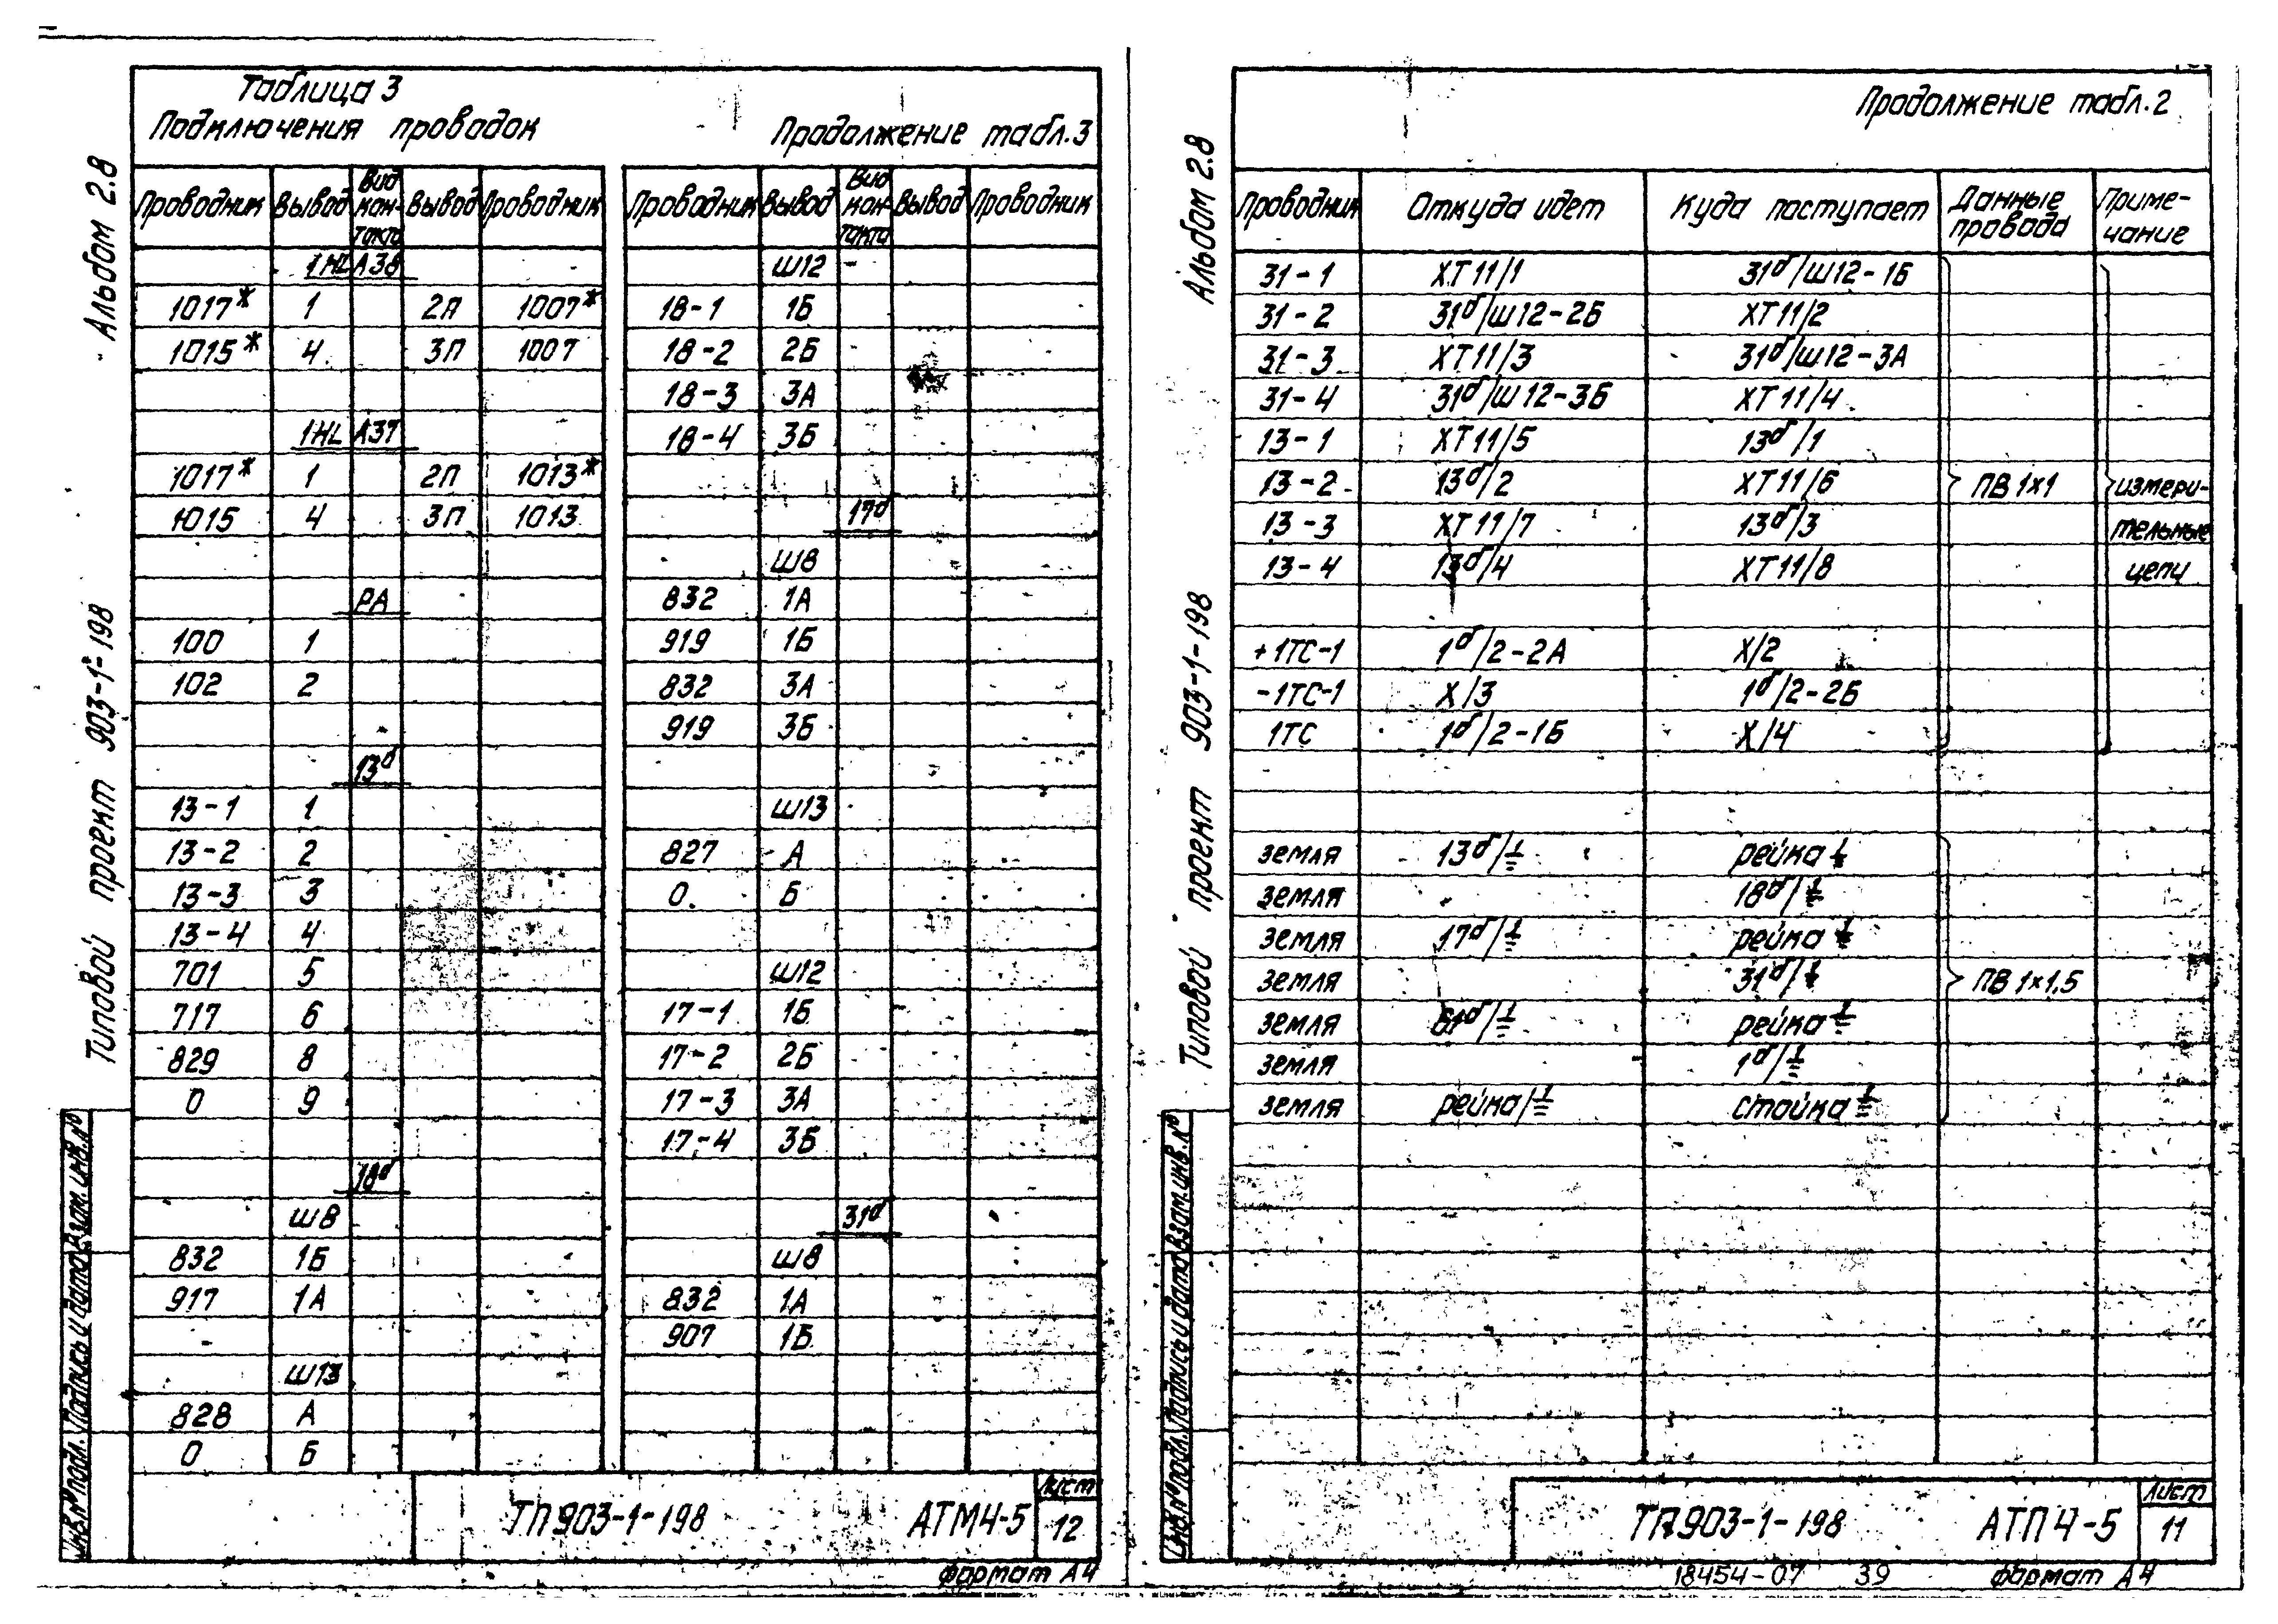 Таблица 3
Подключения проводок
Продолжение табл.3
Проводник Вывод Вид кон-такта Вывод Проводник
1HLA38
1017* 1 2п 1007*
1015* 4 3п 1007
1HLA37
1017* 1 2п 1013*
1015 4 3п 1013
РА
100 1
102 2
13б
13-1 1
13-2 2
13-3 3
13-4 4
701 5
717 6
829 8
0 9
18б
Ш8
832 1Б
917 1А
Ш13
828 А
0 Б
Проводник Вывод Вид кон-такта Вывод Проводник
Ш12
18-1 1Б
18-2 2Б
18-3 3А
18-4 3Б
17б
Ш8
832 1А
919 1Б
832 3А
919 3Б
Ш13
827 А
0 Б
Ш12
17-1 1Б
17-2 2Б
17-3 3А
17-4 3Б
31б
Ш8
832 1А
907 1Б
ТП903-1-198 АТМ4-5
Лист
12
Формат А4
Альбом 2.8
Типовой проект 903-1-198
Инв.№ подл. Подпись и дата Взам.инв.№
Продолжение табл.2
Проводник Откуда идет Куда поступает Данные провода Приме-чание
31-1 ХТ11/1 31б/Ш12-1Б
31-2 31б/Ш12-2Б ХТ11/2
31-3 ХТ11/3 31б/Ш12-3А
31-4 31б/Ш12-3Б ХТ11/4
13-1 ХТ11/5 13б/1
13-2 13б/2 ХТ11/6 ПВ 1×1 измери-
13-3 ХТ11/7 13б/3 тельные
13-4 13б/4 ХТ11/8 цепи
+1ТС-1 1б/2-2А Х/2
-1ТС-1 Х/3 1б/2-2Б
1ТС 1б/2-1Б Х/4
земля 13б/⏚ рейка ⏚
земля 18б/⏚
земля 17б/⏚ рейка ⏚
земля 31б/⏚ ПВ 1×1,5
земля рейка ⏚
земля 1б/⏚
земля рейка/⏚ стойка ⏚
ТП903-1-198 АТП4-5
Лист
11
18454-07 39 Формат А4
Альбом 2.8
Типовой проект 903-1-198
Инв.№ подл. Подпись и дата Взам.инв.№